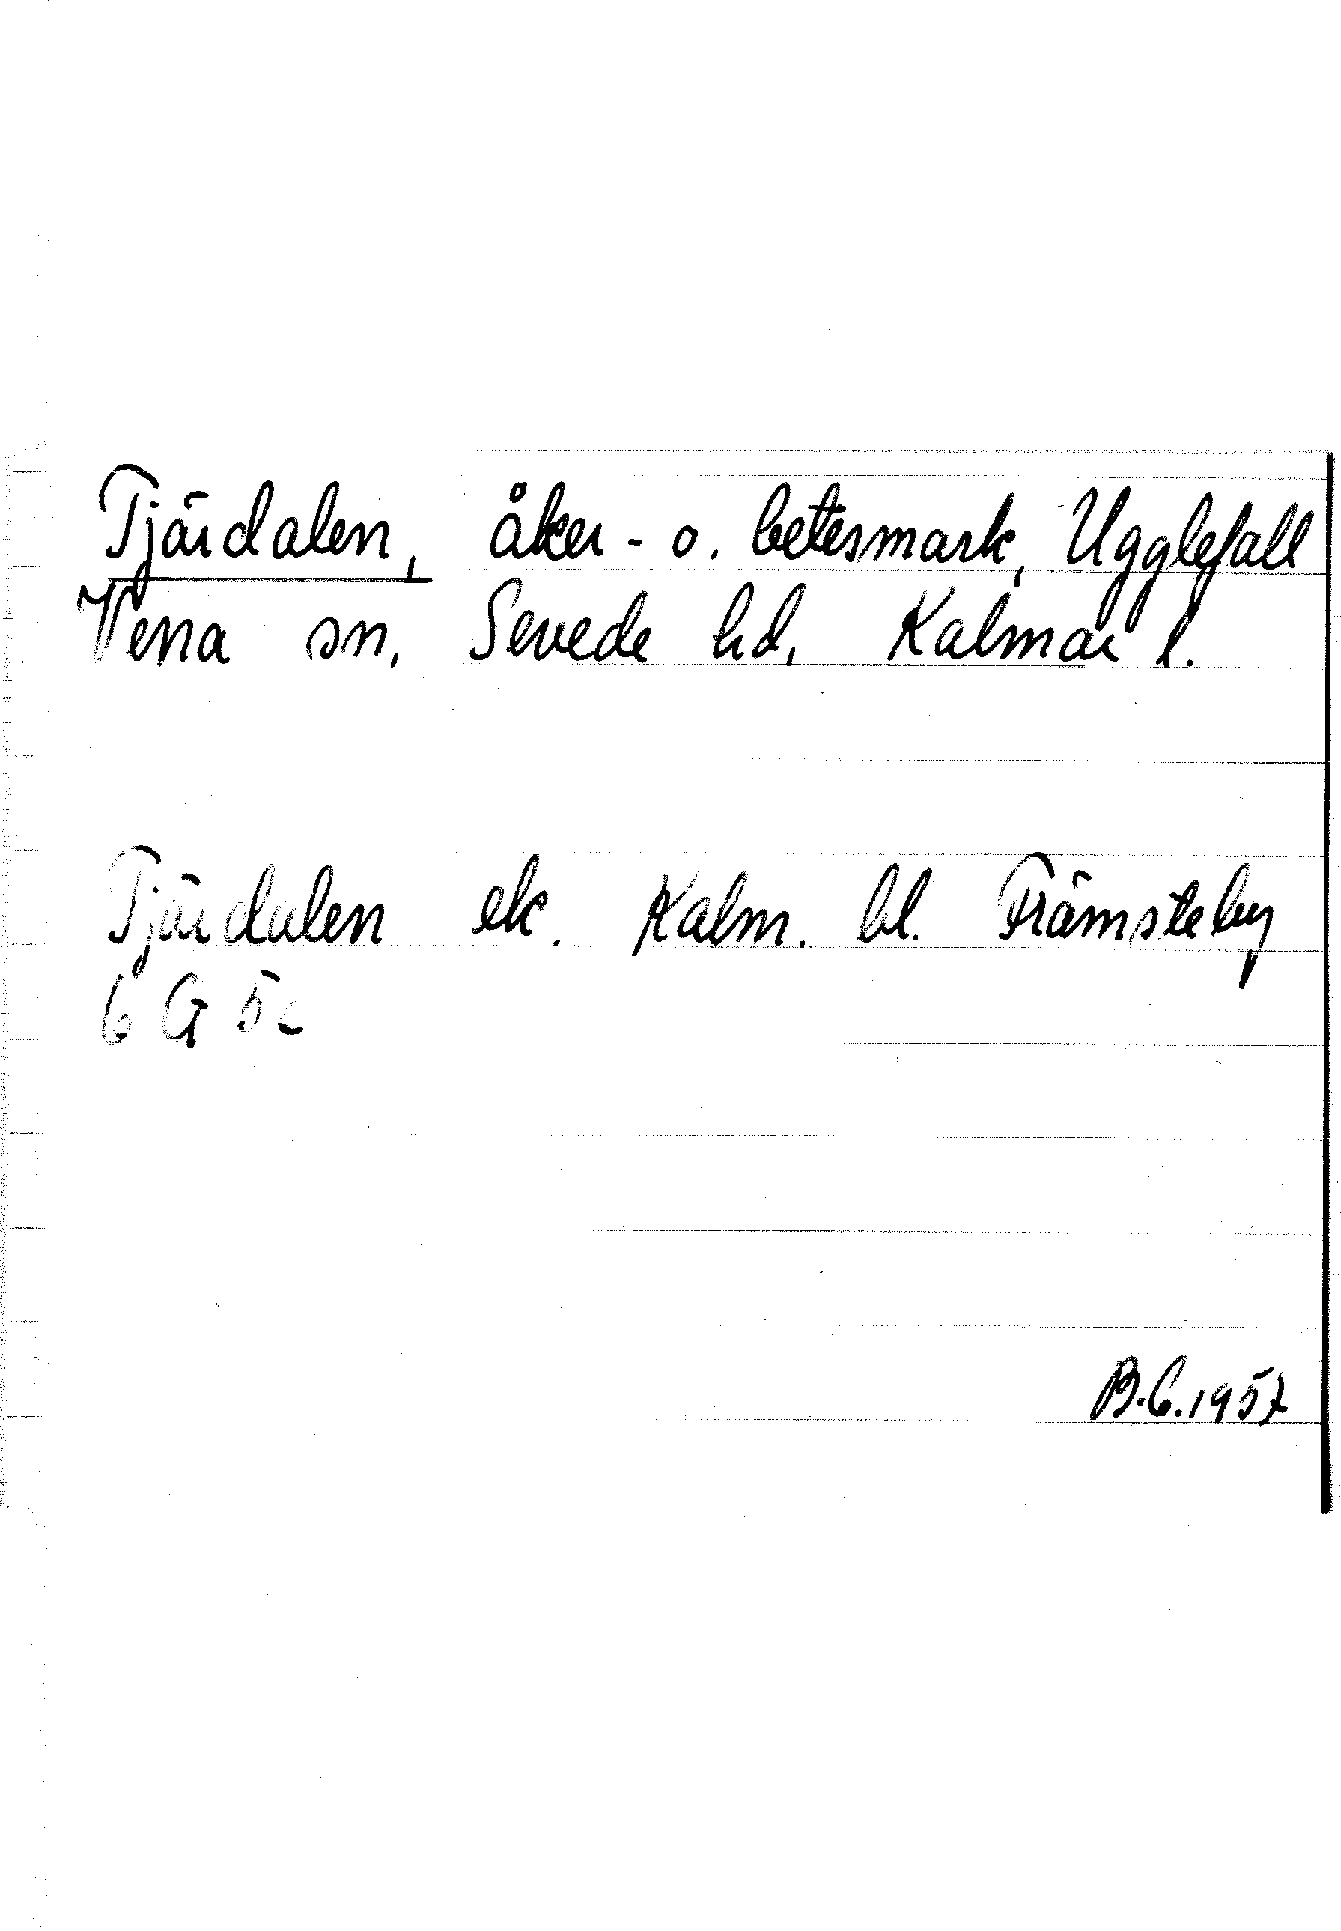 Tjärdalen, åker- o. betesmark, Ugglefall
Vena sn, Sevede hd, Kalmar l.
Tjärdalen ek. Kalm. bl. Främsteby
6 G 5c
B.G. 1957